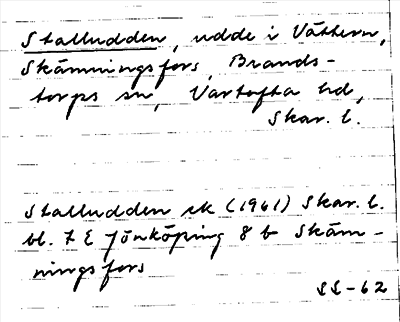 Stalludden, udde i Vättern,
Skämningsfors, Brands-
torps sn, Vartofta hd,
Skar. l.
Stalludden ek (1961) Skar. l.
bl. 7 E Jönköping 8 b Skäm-
ningsfors
SS-62